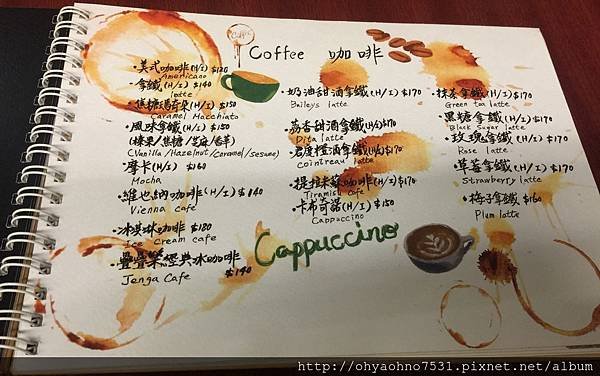 Caffe
Coffee 咖啡
·美式咖啡(H/I) $120
Americano
·拿鐵(H/I) $140
latte
·焦糖瑪奇朵(H/I) $150
Caramel Macchiato
·風味拿鐵(H/I) $150
(榛果/焦糖/芝麻/香草)
(Vanilla/Hazelnut/caramel/sesame)
·摩卡(H/I) $160
Mocha
·維也納咖啡(H/I) $140
Vienna cafe
·冰淇淋咖啡 $180
Ice cream cafe
·疊疊樂經典冰咖啡 $140
Jenga Cafe
·奶油甜酒拿鐵(H/I) $170
Baileys latte
·荔香甜酒拿鐵(H/I) $170
Dita latte
·君度橙酒拿鐵(H/I) $170
Cointreau latte
·提拉米蘇咖啡(H/I) $170
Tiramisu cafe
·卡布奇諾(H/I) $150
Cappuccino
Cappuccino
·抹茶拿鐵(H/I) $170
Green tea latte
·黑糖拿鐵(H/I) $170
Black Sugar latte
·玫瑰拿鐵(H/I) $170
Rose latte
·草莓拿鐵(H/I) $170
Strawberry latte
·梅子拿鐵 $160
Plum latte
http://ohyaohno7531.pixnet.net/album